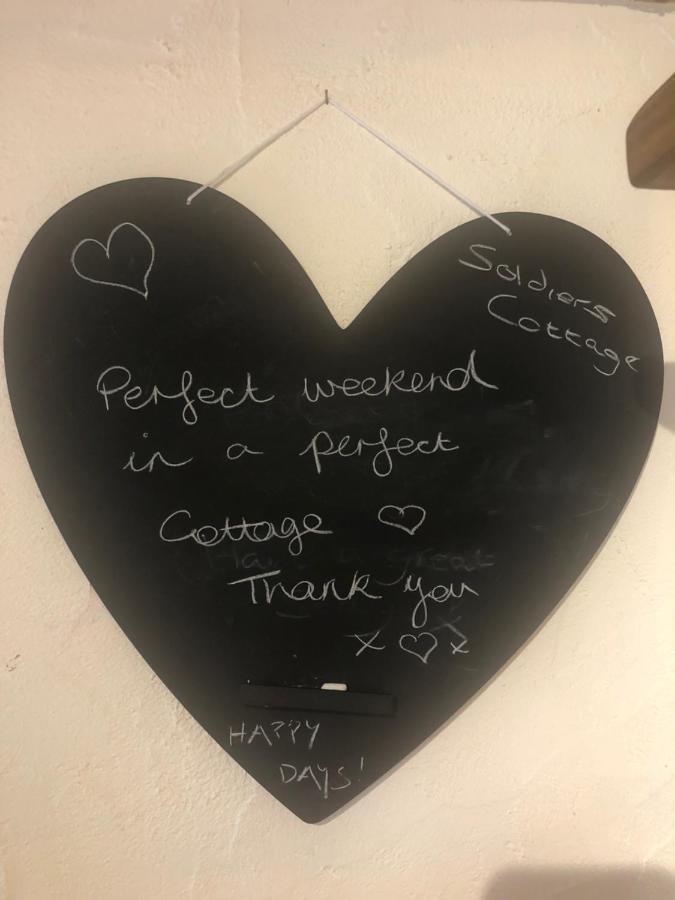 Soldiers
Cottage
Perfect weekend
in a perfect
Cottage ♡
Thank you
x ♡ x
HAPPY
DAYS!